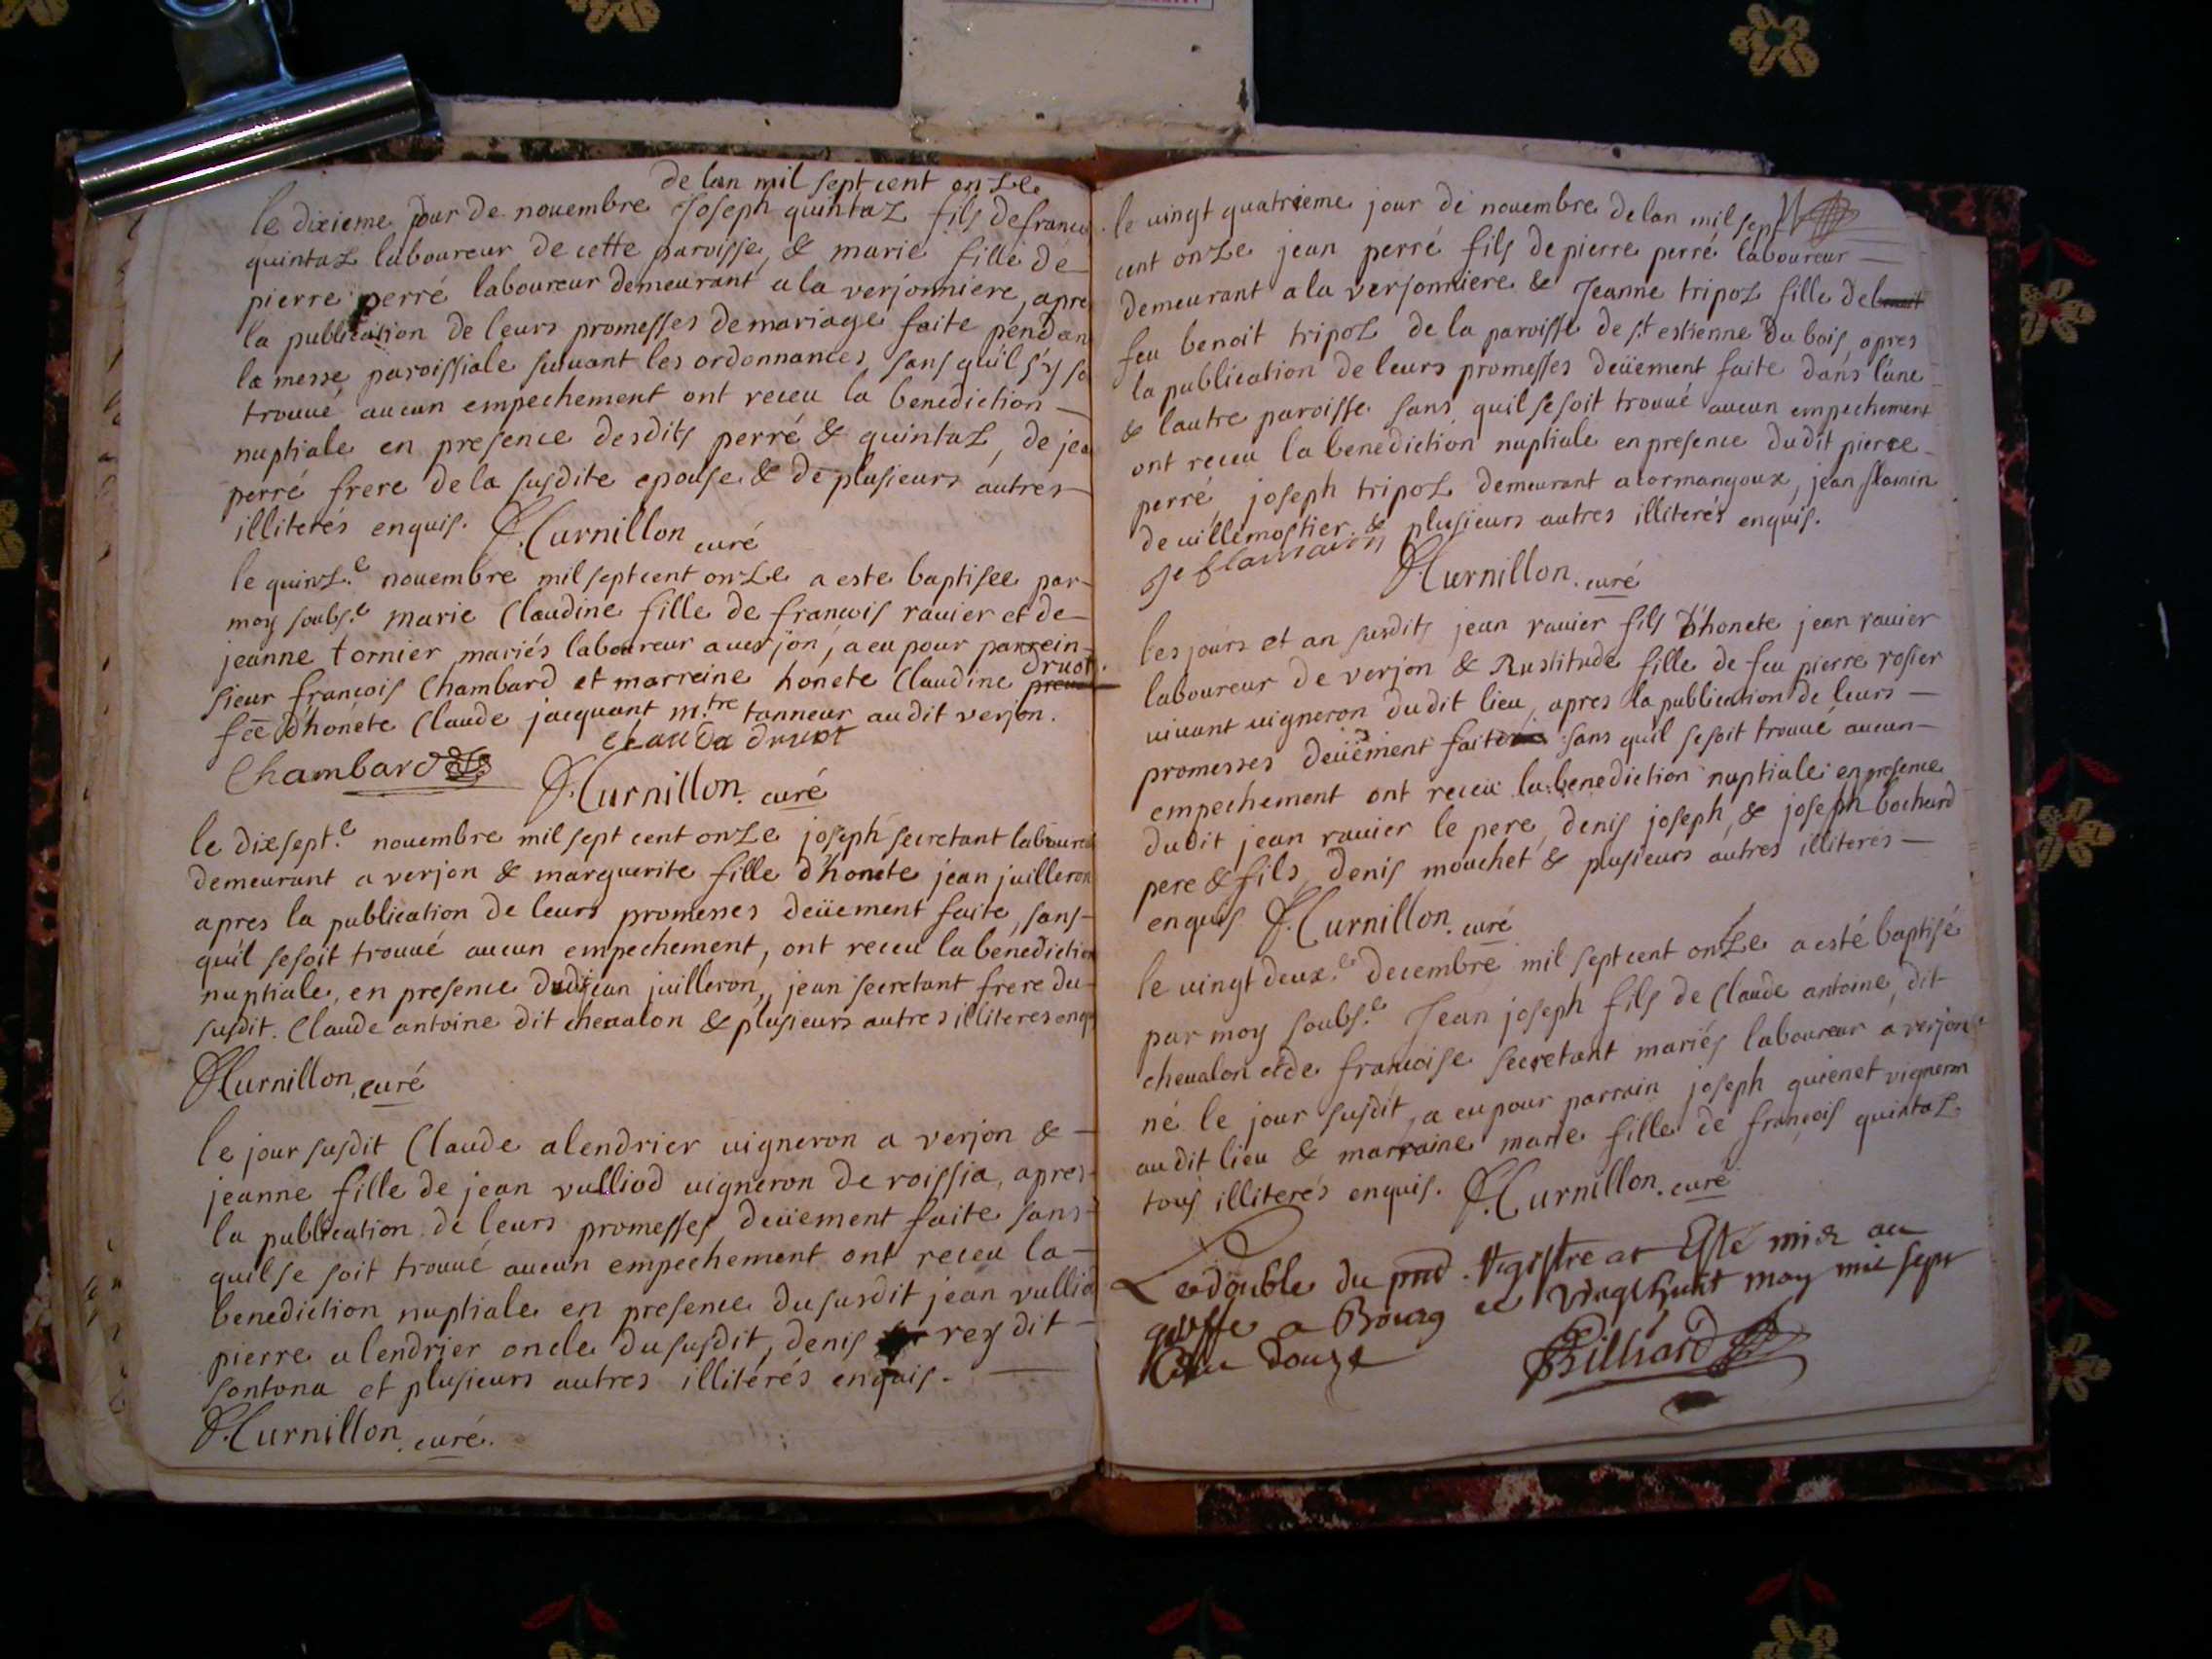 de lan mil sept cent onze
le dixieme jour de novembre Joseph quintaz fils de francoi
quintaz laboureur de cette paroisse, & marie fille de
pierre perré laboureur demeurant a la verjonniere, apre
la publication de leurs promesses de mariage faite pendan
la messe paroissiale suivant les ordonnances, sans quil s'y so
trouué aucun empechement ont receu la benediction
nuptiale en presence desdits perré & quintaz, de jea
perré frere de la susdite epouse & de plusieurs autres
illiterés enquis. Curnillon curé
le quinz.e nouembre mil sept cent onze a este baptisee par
moy soubs.e marie Claudine fille de francois rauier et de
jeanne tornier mariés laboureur a uerjon, a eu pour parrein
sieur françois Chambard et marreine honete Claudine druot
feē d'honéte Claude jacquant m.tre tanneur audit verjon.
Clauda druot
Chambard Curnillon. curé
le dixsept.e nouembre mil sept cent onze joseph secretant laboureu
demeurant a verjon & marguerite fille d'honete jean juilleron
apres la publication de leurs promesses deüement faite, sans
quil se soit trouué aucun empechement, ont receu la benediction
nuptiale, en presence dudjean juilleron, jean secretant frere du
susdit. Claude antoine dit cheualon & plusieurs autres illiteres enqu
Curnillon, curé
le jour susdit Claude alendrier uigneron a verjon &
jeanne fille de jean vulliod uigneron de roissia, apres
la publication de leurs promesses deüement faite sans
quil se soit trouué aucun empechement ont receu la
benediction nuptiale en presence du susdit jean vulliod
pierre alendrier oncle du susdit, denis rey dit
sontona et plusieurs autres illitérés enquis.
Curnillon. curé.
le uingt quatrieme jour de nouembre de lan mil sept
cent onze jean perré fils de pierre perré laboureur
demeurant a la verjonniere & Jeanne tripoz fille de
feu benoit tripoz de la paroisse de s.t estienne du bois, apres
la publication de leurs promesses deüement faite dans lune
& lautre paroisse sans quil se soit trouué aucun empechement
ont receu la benediction nuptiale en presence dudit pierre
perré, joseph tripoz demeurant a lormangoux, jean flamin
de uillemostier & plusieurs autres illiterés enquis.
Curnillon. curé
les jours et an susdits jean rauier fils d'honete jean rauier
laboureur de verjon & Rustitude fille de feu pierre rosier
uiuant uigneron dudit lieu, apres la publication de leurs
promesses deüement faites sans quil se soit trouué aucun
empechement ont receu la benediction nuptiale en presence
dudit jean rauier le pere, denis joseph, & joseph bochard
pere & fils, denis mouchet & plusieurs autres illiterés
enquis Curnillon. curé
le uingt deux.e decembre mil sept cent onze a esté baptisé
par moy soubs.e Jean joseph fils de Claude antoine, dit
cheualon et de francoise secretant mariés laboureur a verjon
né le jour susdit, a eu pour parrain joseph guienet vigneron
audit lieu & marraine marie fille de françois quintaz
tous illiterés enquis. Curnillon. curé
Le double du pnt. Registre at Esté mis au
greffe a Bourg le vingt huit may mil sept
Cent douze Billiard